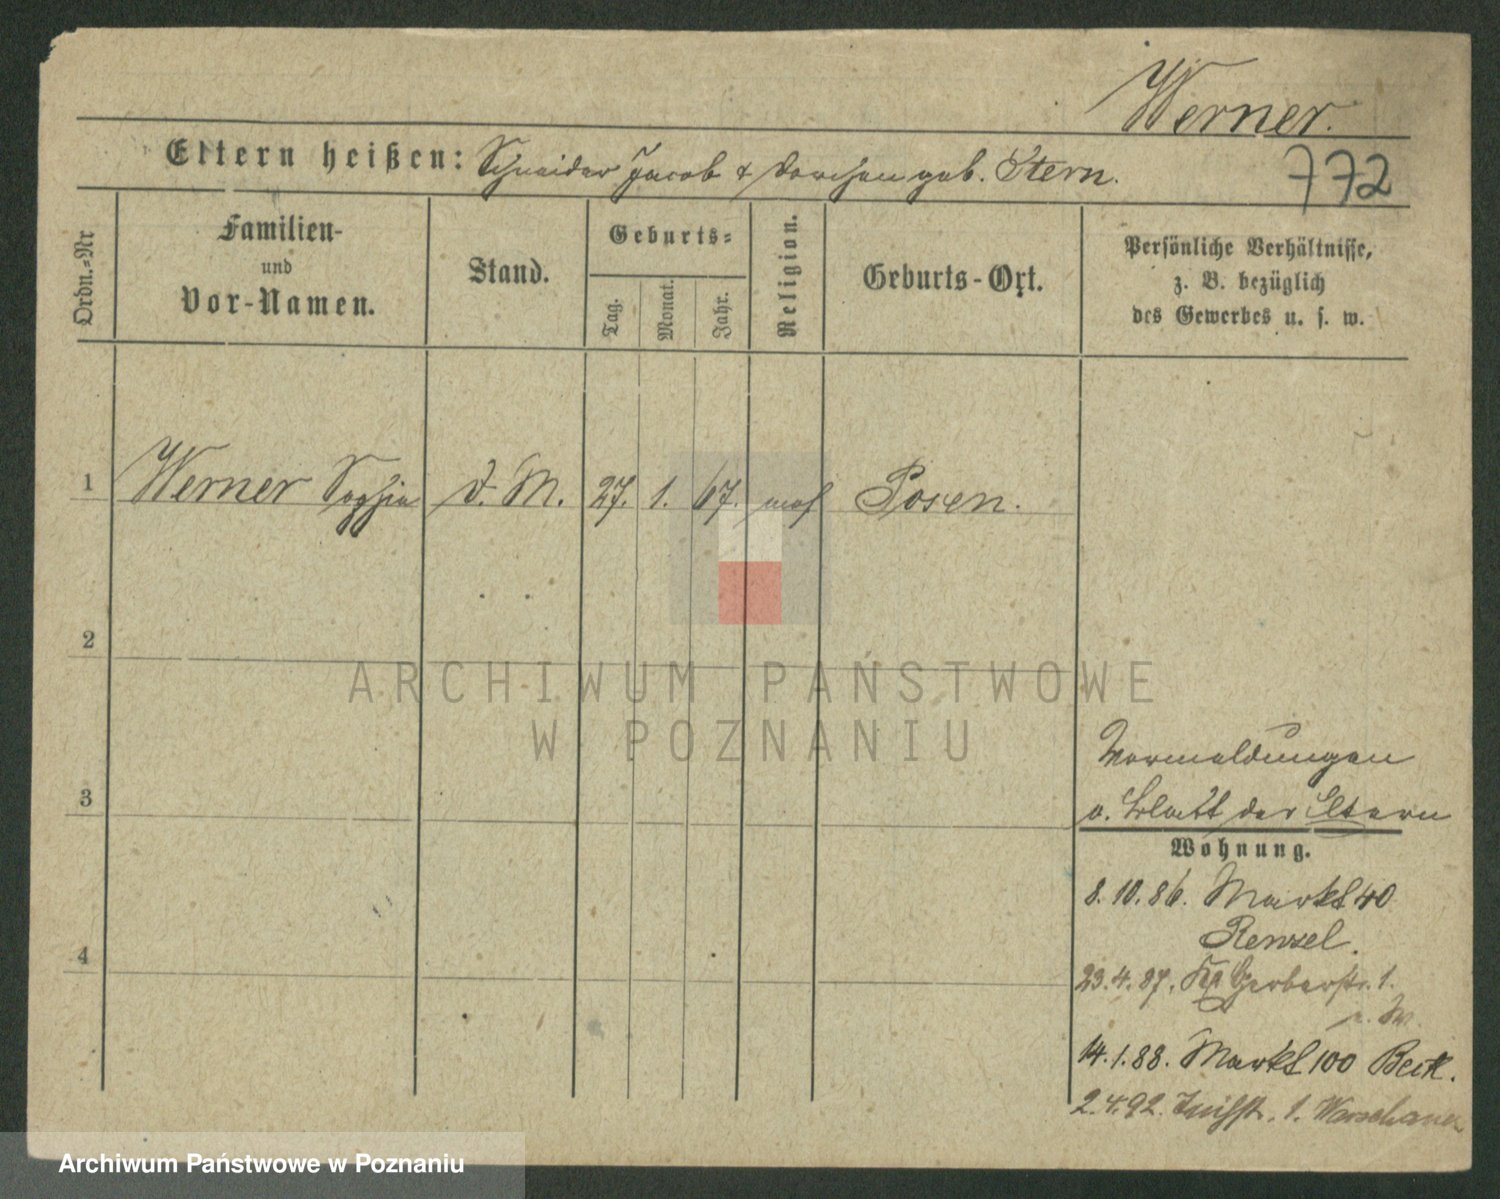 Werner.
Eltern heißen: Schneider Jacob & Dorchen geb. Stern.
772
Ordn.-Nr
Familien-
und
Vor-Namen.
Stand.
Geburts-
Tag.
Monat.
Jahr.
Religion.
Geburts-Ort.
Persönliche Verhältnisse,
z. B. bezüglich
des Gewerbes u. s. w.
1 Werner Sophie d. M. 27. 1. 67. mos Posen.
2
3
4
ARCHIWUM PAŃSTWOWE
W POZNANIU
Vormeldungen
a. Blatt der Eltern
Wohnung.
8. 10. 86. Markt 40
23. 4. 87. Gerberstr. 1.
14. 1. 88. Markt 100
2. 4. 92. 1. Warschauer
Archiwum Państwowe w Poznaniu